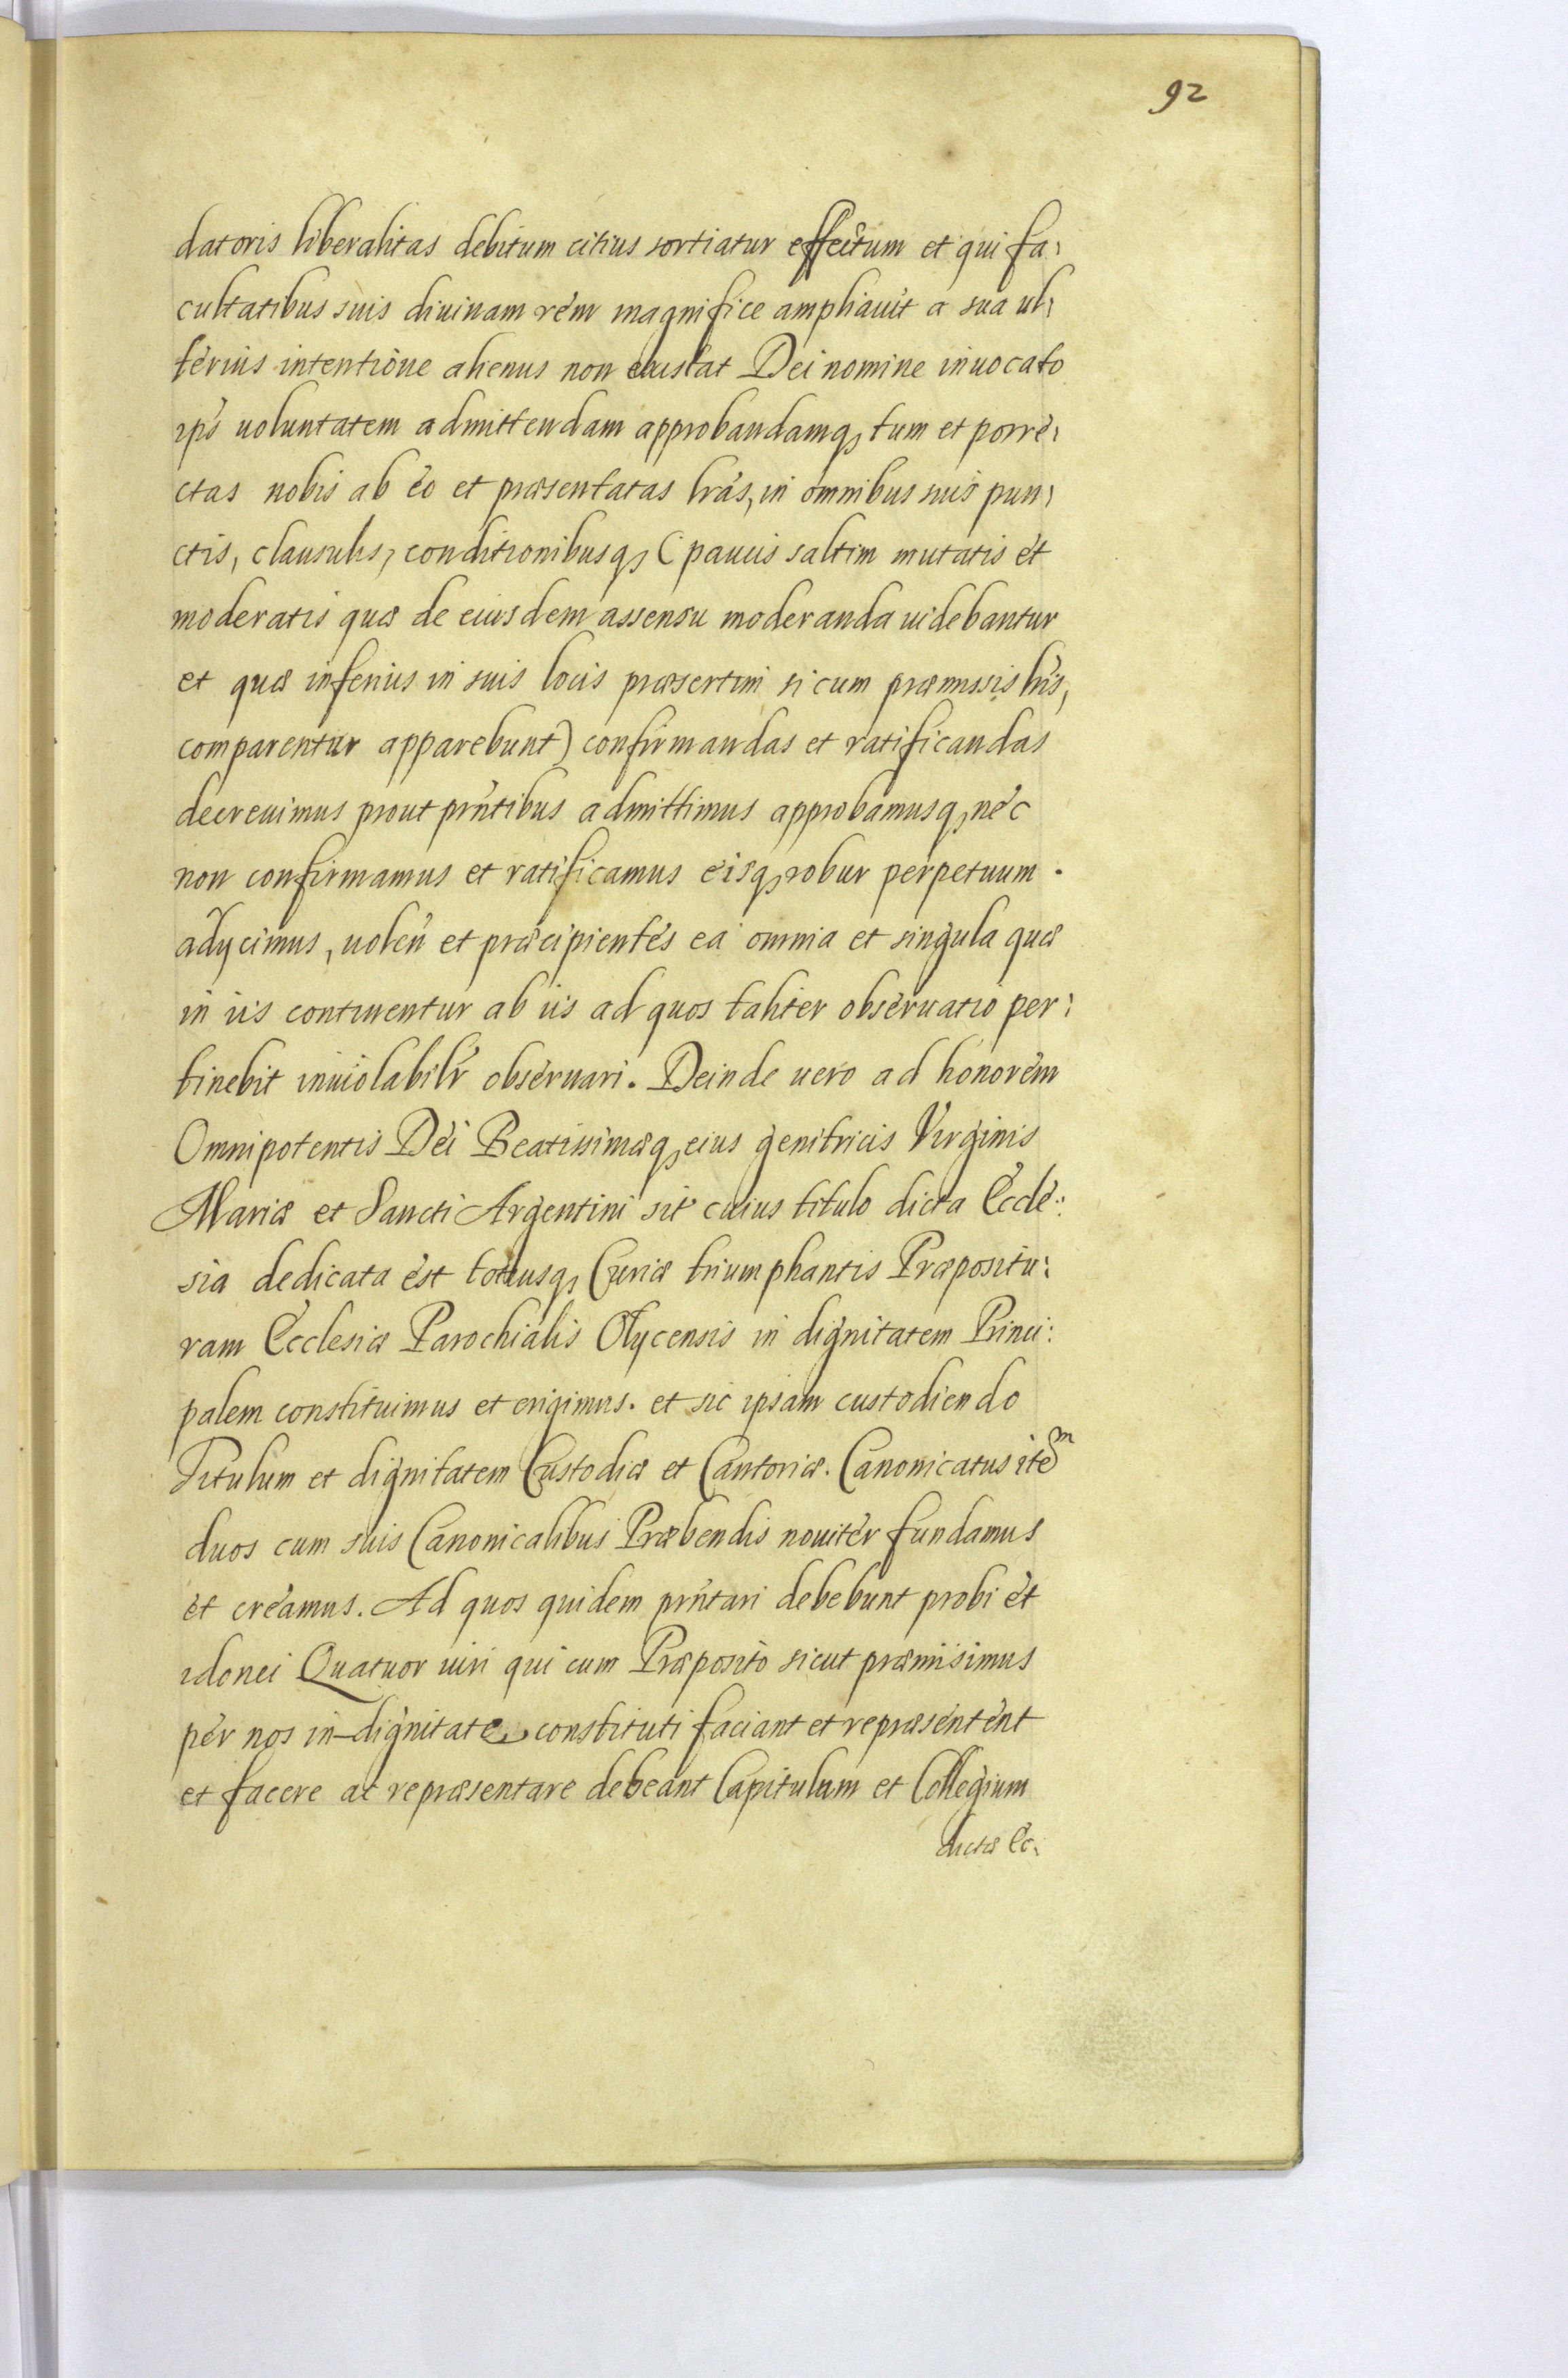 92
datoris liberalitas debitum citius sortiatur effectum et qui fa:
cultatibus suis diuinam rem magnifice ampliauit a sua ul:
terius intentione alienus non existat Dei nomine inuocato
ips uoluntatem admittendam approbandamq, tum et porre:
ctas nobis ab eo et præsentatas lras, in omnibus suis pun:
ctis, clausulis, conditionibusq, (paucis saltim mutatis et
moderatis quæ de eiusdem assensu moderanda uidebantur
et quæ inferius in suis locis præsertim si cum præmissis lris,
comparentur apparebunt) confirmandas et ratificandas
decreuimus prout pntibus admittimus approbamusq, nec
non confirmamus et ratificamus eisq, robur perpetuum.
adycimus, uolen et præcipientes ea omnia et singula quæ
in iis continentur ab iis ad quos taliter obseruatio per:
tinebit inuiolabilr obseruari. Deinde uero ad honorem
Omnipotentis Dei Beatissimæq, eius genitricis Virginis
Mariæ et Sancti Argentini sit cuius titulo dicta Eccle:
sia dedicata est totiusq, Curiæ triumphantis Præpositu:
ram Ecclesiæ Parochialis Olycensis in dignitatem Princi:
palem constituimus et erigimus. et sic ipsam custodiendo
Titulum et dignitatem Custodiæ et Cantoriæ. Canonicatus item
duos cum suis Canonicalibus Præbendis nouiter fundamus
et creamus. Ad quos quidem pntari debebunt probi et
idonei Quatuor uiri qui cum Præposito sicut præmisimus
per nos in dignitate constituti faciant et repræsentent
et facere ac repræsentare debeant Capitulum et Collegium
dictæ Ec: